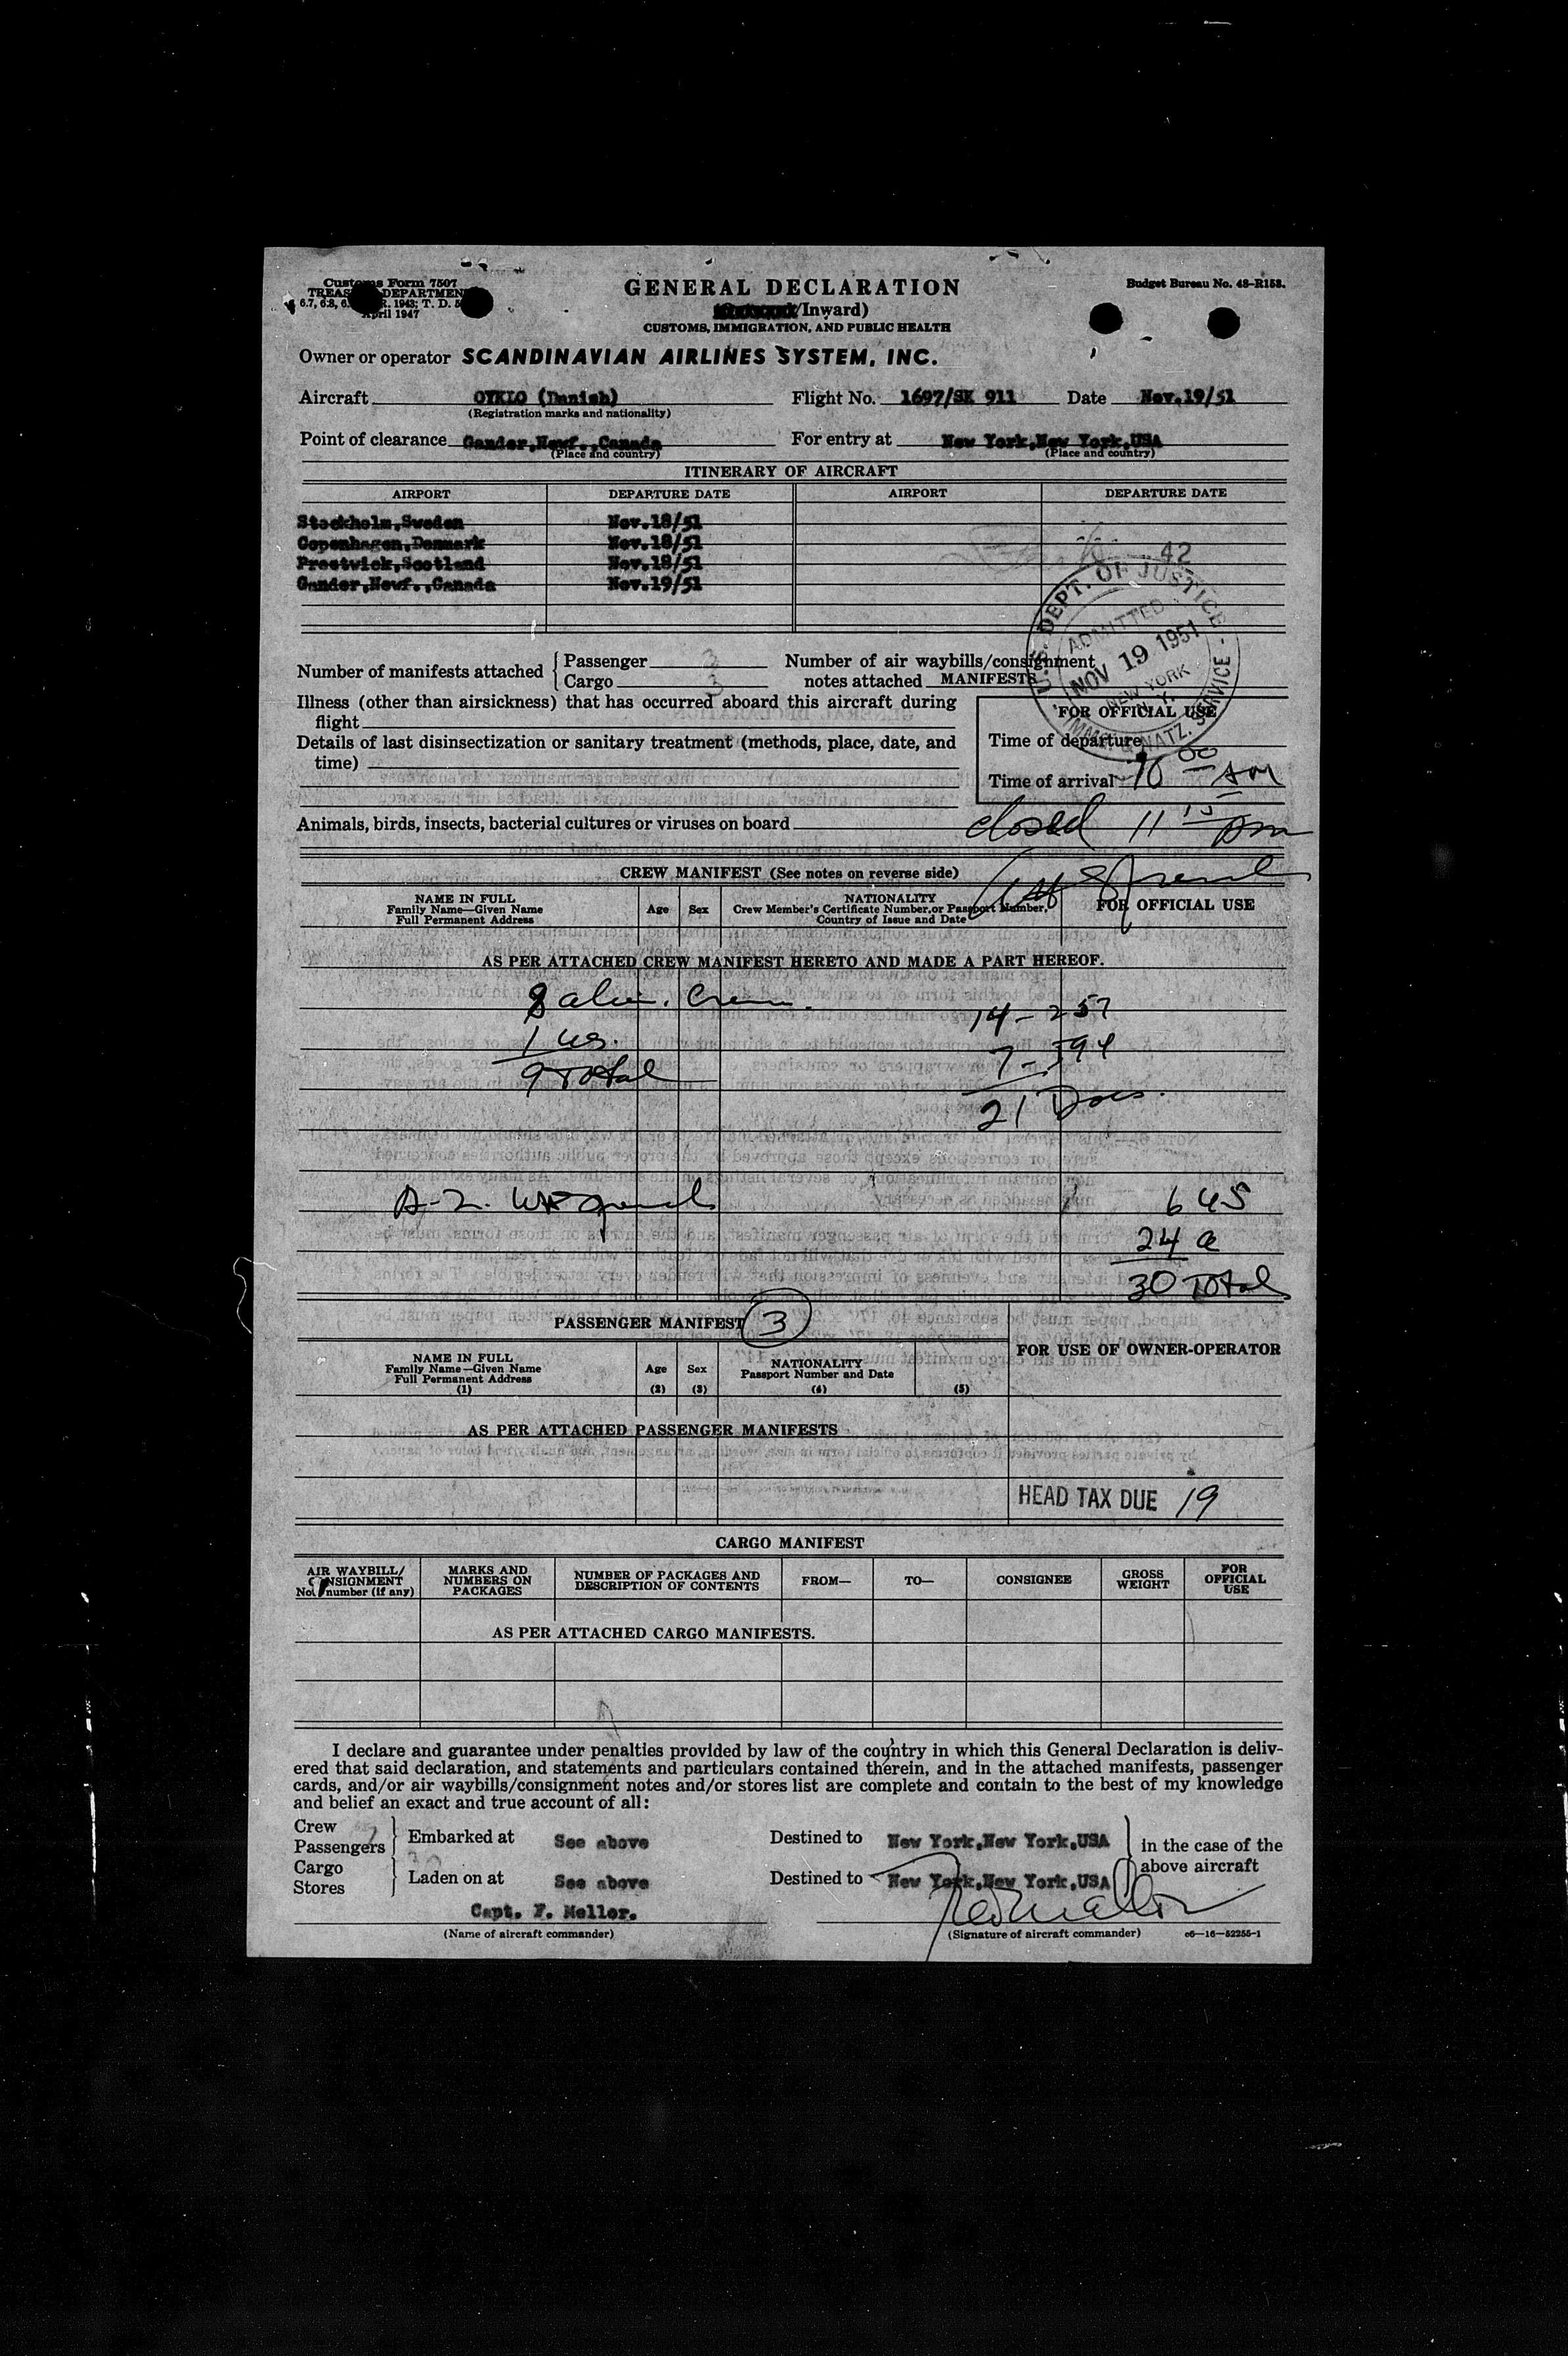 Customs Form 7507
TREAS DEPARTMEN
6.7, 6.8, 6. R. 1943; T. D. 5
April 1947
GENERAL DECLARATION
/Inward)
CUSTOMS, IMMIGRATION, AND PUBLIC HEALTH
Budget Bureau No. 48-R158.
Owner or operator SCANDINAVIAN AIRLINES SYSTEM, INC.
Aircraft OYKLO (Danish) Flight No. 1697/SK 911 Date Nov.19/51
(Registration marks and nationality)
Point of clearance Gander,Newf.,Canada For entry at New York,New York,USA
(Place and country) (Place and country)
ITINERARY OF AIRCRAFT
AIRPORT DEPARTURE DATE AIRPORT DEPARTURE DATE
Stockholm,Sweden Nov.18/51
Copenhagen,Denmark Nov.18/51
Prestwick,Scotland Nov.18/51
Gander,Newf.,Canada Nov.19/51
42
U.S. DEPT. OF JUSTICE - IMMI. & NATZ. SERVICE -
ADMITTED
NOV 19 1951
NEW YORK
N.Y.
Number of manifests attached
Passenger 3
Cargo 3
Number of air waybills/consignment
notes attached MANIFESTS
Illness (other than airsickness) that has occurred aboard this aircraft during
flight
Details of last disinsectization or sanitary treatment (methods, place, date, and
time)
FOR OFFICIAL USE
Time of departure
Time of arrival 10 00 AM
Animals, birds, insects, bacterial cultures or viruses on board
closed 11 15 am
CREW MANIFEST (See notes on reverse side)
NAME IN FULL
Family Name—Given Name
Full Permanent Address
Age
Sex
NATIONALITY
Crew Member's Certificate Number,or Passport Number,
Country of Issue and Date
FOR OFFICIAL USE
AS PER ATTACHED CREW MANIFEST HERETO AND MADE A PART HEREOF.
8 alien. Crew.
1 us.
9 Total
14 - 257
7 - 594
21 Docs.
A-2.
6 US
24 a
30 Total
PASSENGER MANIFEST 3
NAME IN FULL
Family Name—Given Name
Full Permanent Address
(1)
Age
(2)
Sex
(3)
NATIONALITY
Passport Number and Date
(4)
(5)
FOR USE OF OWNER-OPERATOR
AS PER ATTACHED PASSENGER MANIFESTS
HEAD TAX DUE 19
CARGO MANIFEST
AIR WAYBILL/
CONSIGNMENT
Note number (if any)
MARKS AND
NUMBERS ON
PACKAGES
NUMBER OF PACKAGES AND
DESCRIPTION OF CONTENTS
FROM—
TO—
CONSIGNEE
GROSS
WEIGHT
FOR
OFFICIAL
USE
AS PER ATTACHED CARGO MANIFESTS.
I declare and guarantee under penalties provided by law of the country in which this General Declaration is deliv-
ered that said declaration, and statements and particulars contained therein, and in the attached manifests, passenger
cards, and/or air waybills/consignment notes and/or stores list are complete and contain to the best of my knowledge
and belief an exact and true account of all:
Crew
Passengers
Embarked at See above Destined to New York,New York,USA
Cargo
Stores
Laden on at See above Destined to New York,New York,USA
in the case of the
above aircraft
Capt. F. Mellor.
(Name of aircraft commander)
(Signature of aircraft commander)
c6—16—52255-1